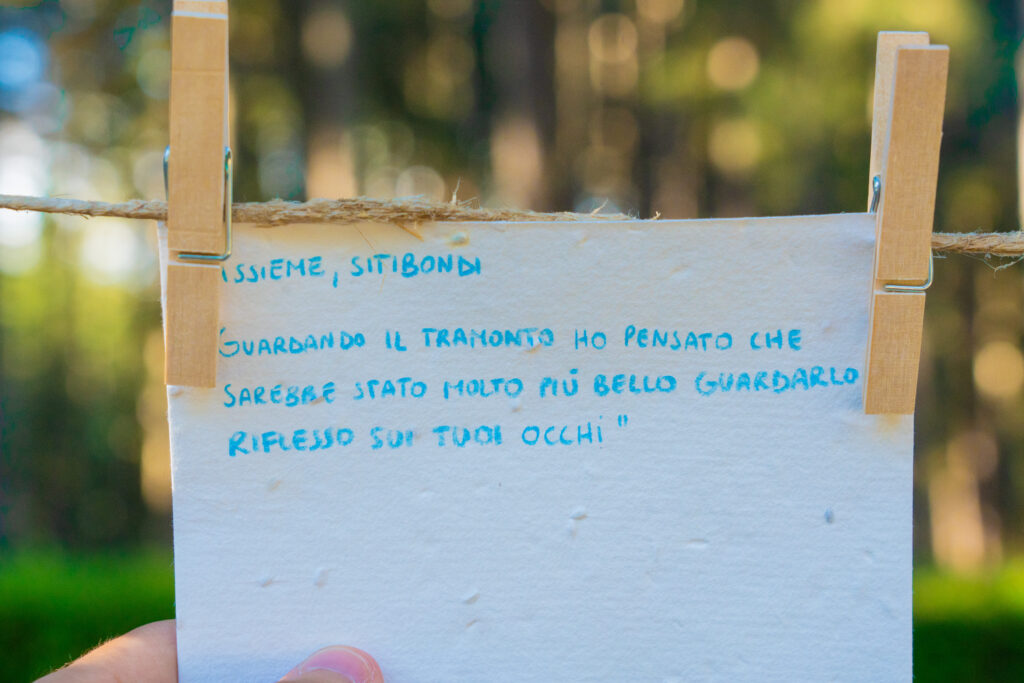 ASSIEME, SITIBONDI
GUARDANDO IL TRAMONTO HO PENSATO CHE
SAREBBE STATO MOLTO PIÚ BELLO GUARDARLO
RIFLESSO SUI TUOI OCCHI"